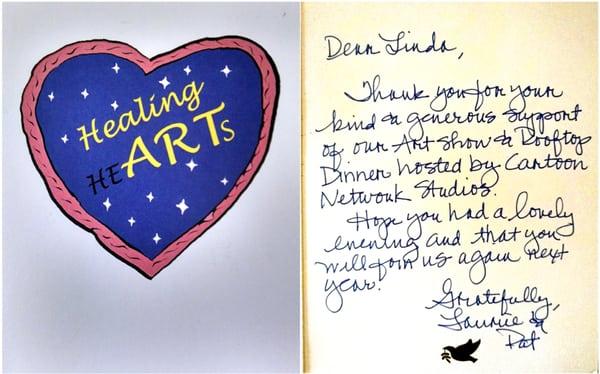 Healing
HEARTS
Dear Linda,
Thank you for your
kind & generous support
of our Art Show & Rooftop
Dinner hosted by Cartoon
Network Studios.
Hope you had a lovely
evening and that you
will join us again next
year.
Gratefully,
Laurie &
Pat